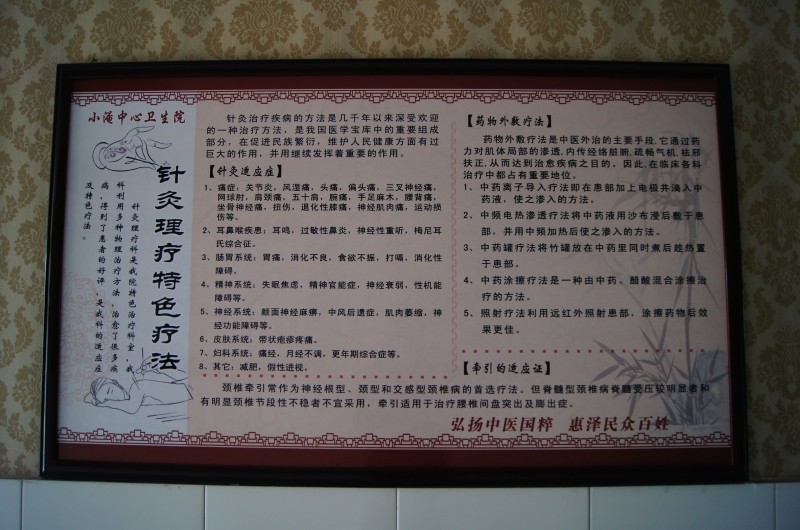 小渔中心卫生院
针灸理疗特色疗法
针灸理疗科是我院特色治疗科室，我
科利用多种物理治疗方法，治愈了很多疾
病，得到了患者的好评，是我科的适应症
及特色疗法。
针灸治疗疾病的方法是几千年以来深受欢迎
的一种治疗方法，是我国医学宝库中的重要组成
部分，在促进民族繁衍，维护人民健康方面有过
巨大的作用，并用继续发挥着重要的作用。
【针灸适应症】
1、痛症：关节炎，风湿痛，头痛，偏头痛，三叉神经痛，
网球肘，肩颈痛，五十肩，腕痛，手足麻木，腰背痛，
坐骨神经痛，扭伤，退化性膝痛，神经肌肉痛，运动损
伤等。
2、耳鼻喉疾患：耳鸣，过敏性鼻炎，神经性重听，梅尼耳
氏综合征。
3、肠胃系统：胃痛，消化不良，食欲不振，打嗝，消化性
障碍。
4、精神系统：失眠焦虑，精神官能症，神经衰弱，性机能
障碍等。
5、神经系统：颜面神经麻痹，中风后遗症，肌肉萎缩，神
经功能障碍等。
6、皮肤系统：带状疱疹疼痛。
7、妇科系统：痛经，月经不调，更年期综合症等。
8、其它：减肥，假性进视。
【药物外敷疗法】
药物外敷疗法是中医外治的主要手段，它通过药
力对肌体局部的渗透，内传经络脏腑，疏畅气机，祛邪
扶正，从而达到治愈疾病之目的。因此，在临床各科
治疗中都占有重要地位。
1、中药离子导入疗法即在患部加上电极并滴入中
药液，使之渗入的方法。
2、中频电热渗透疗法将中药液用沙布浸后敷于患
部，并用中频加热后使之渗入的方法。
3、中药罐疗法将竹罐放在中药里同时煮后趁热置
于患部。
4、中药涂擦疗法是一种由中药、醋酸混合涂擦治
疗的方法。
5、照射疗法利用远红外照射患部，涂擦药物后效
果更佳。
【牵引的适应证】
颈椎牵引常作为神经根型、颈型和交感型颈椎病的首选疗法。但脊髓型颈椎病脊髓受压较明显者和
有明显颈椎节段性不稳者不宜采用，牵引适用于治疗腰椎间盘突出及膨出症。
弘扬中医国粹 惠泽民众百姓